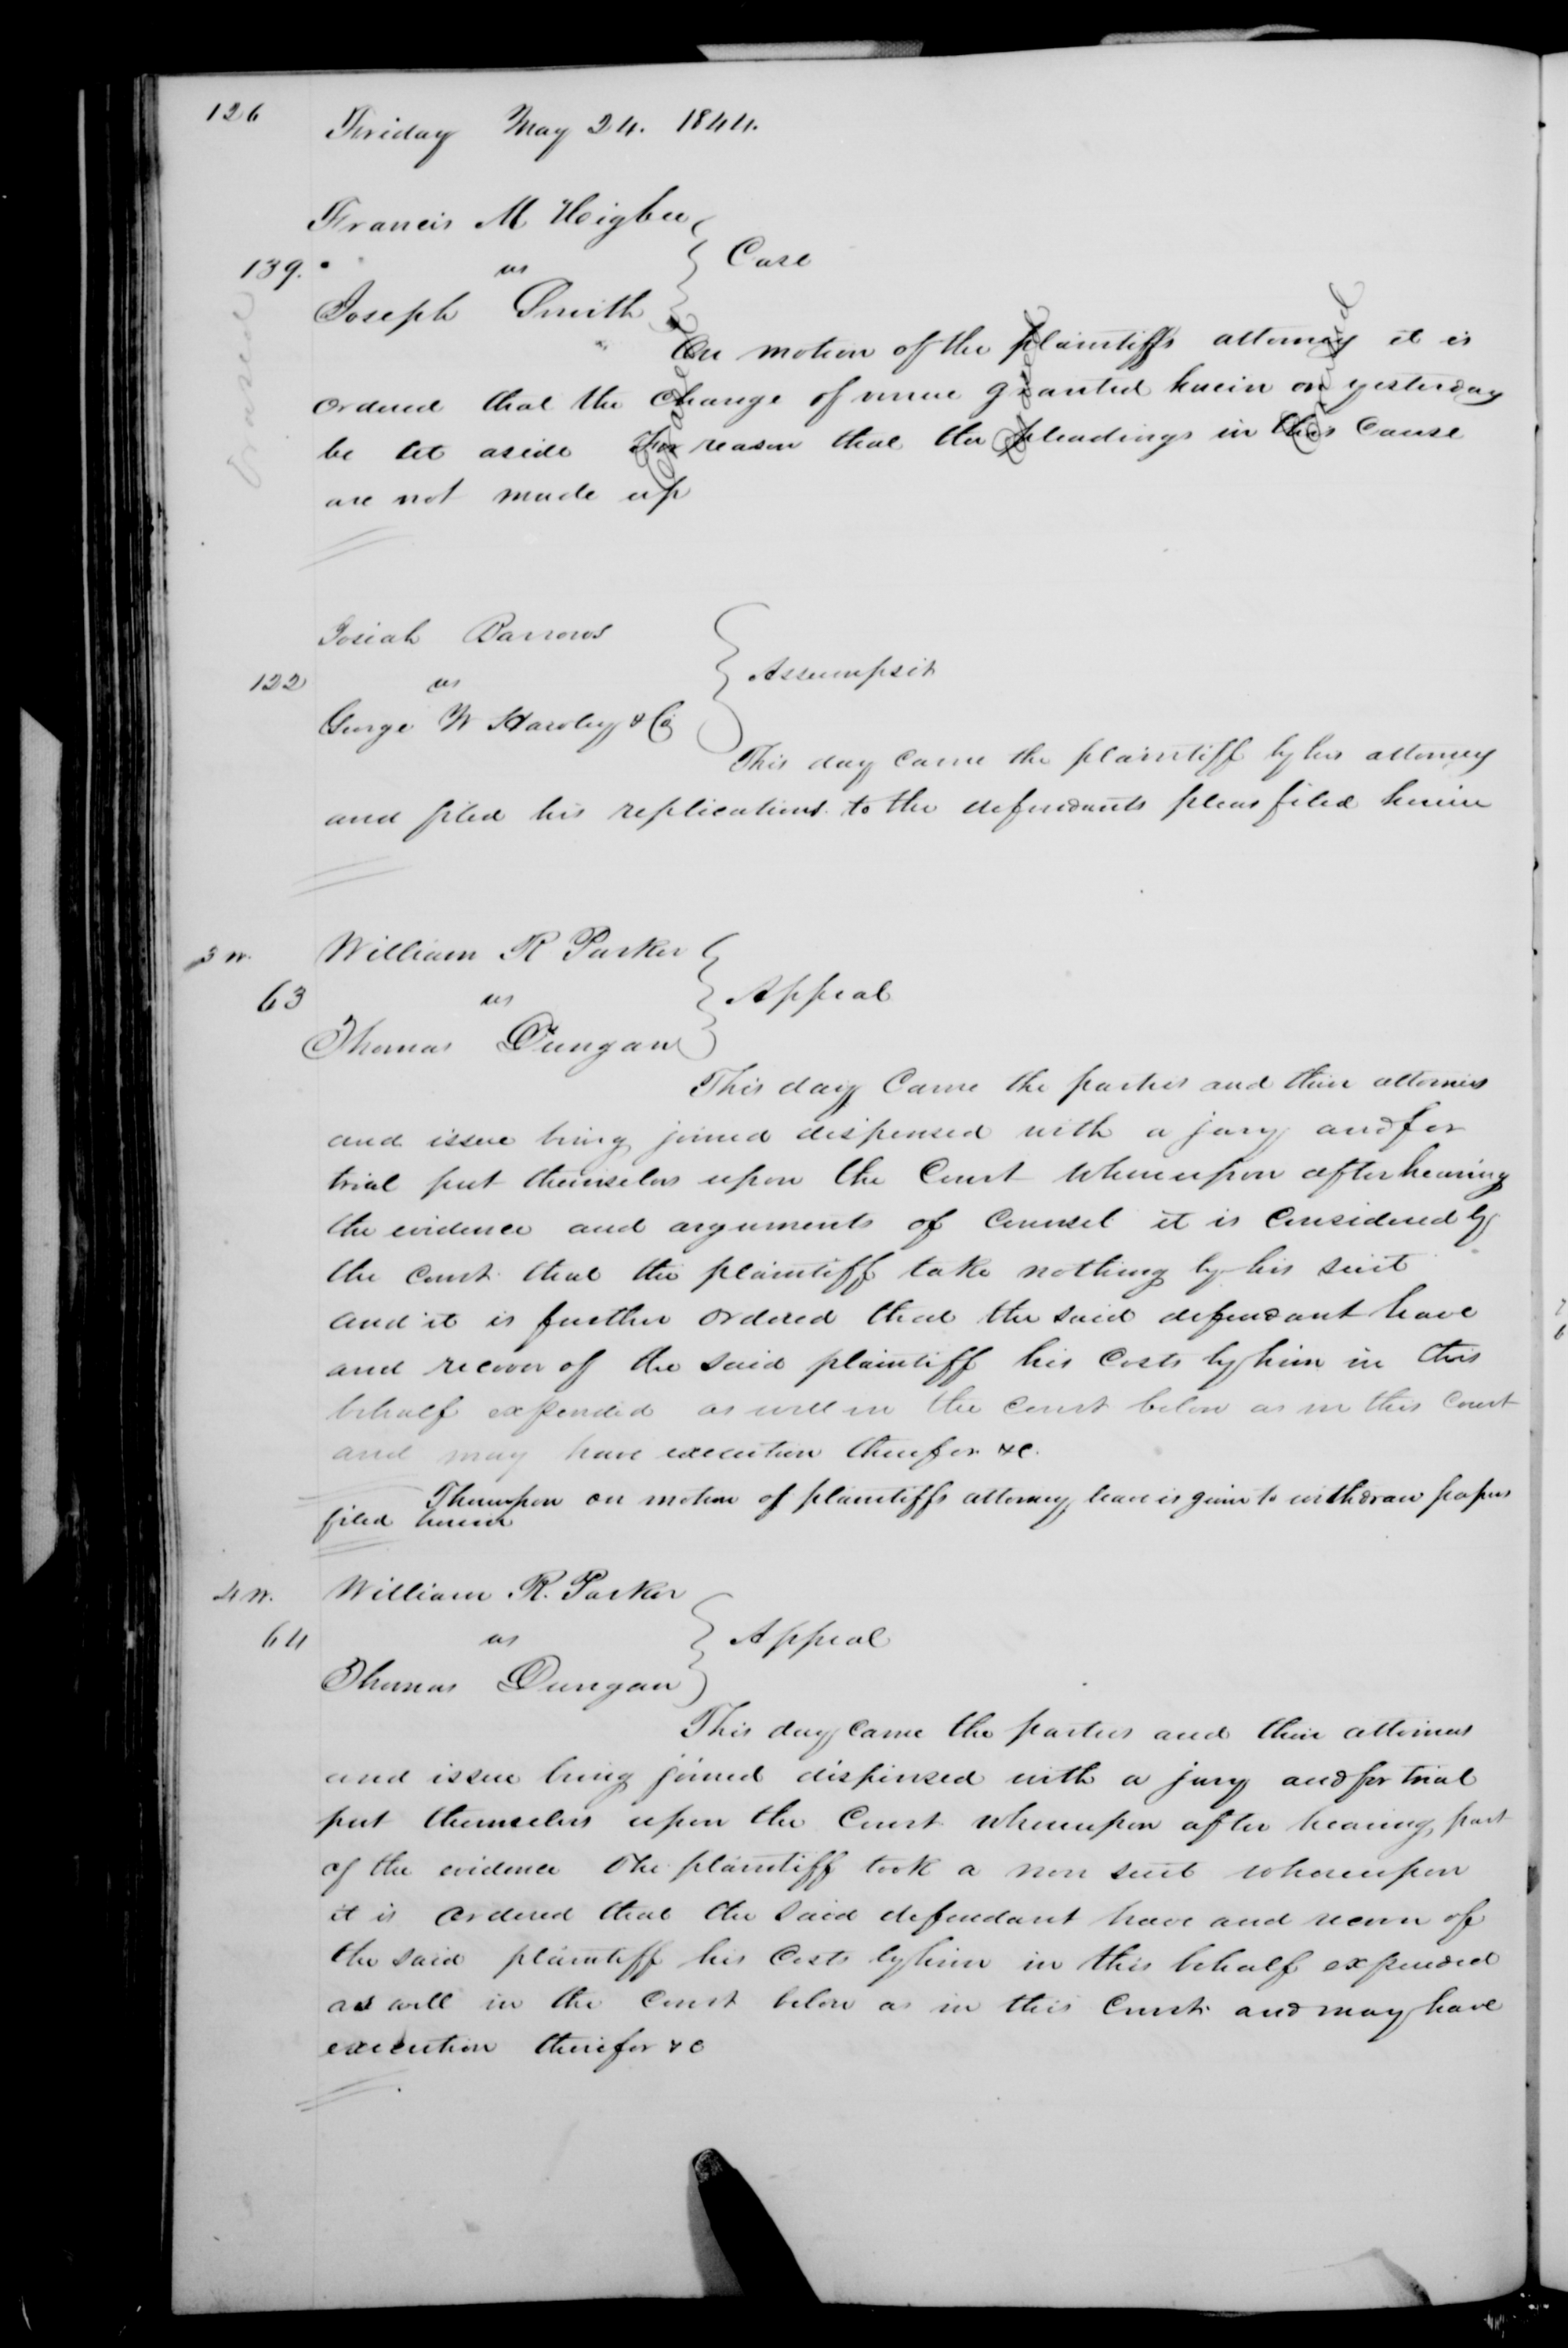 126
Friday May 24. 1844.
Francis M Higbee
139. vs Case
Joseph Smith
On motion of the plaintiffs attorney it is
ordered that the change of venue granted herein on yesterday
be set aside For reason that the pleadings in this cause
are not made up
Erased
Erased
Erased
Erased
Josiah Barrows
122 vs Assumpsit
George W Hawley & Co
This day came the plaintiff by his attorney
and filed his replications to the defendants pleas filed herein
3 W. William R Parker
63 vs Appeal
Thomas Dungan
This day Came the parties and their attornies
and issue being joined dispensed with a jury and for
trial put themselves upon the Court whereupon after hearing
the evidence and arguments of Counsel it is Considered by
the court that the plaintiff take nothing by his suit
and it is further ordered that the said defendant have
and recover of the said plaintiff his Costs by him in this
behalf expended as well in the Court below as in this Court
and may have execution therefor &c.
Thereupon on motion of plaintiffs attorney leave is given to withdraw papers
filed herein
4 W. William R. Parker
64 vs Appeal
Thomas Dungan
This day came the parties and their attornies
and issue being joined dispensed with a jury and for trial
put themselves upon the Court whereupon after hearing part
of the evidence the plaintiff took a non suit whereupon
it is ordered that the said defendant have and recover of
the said plaintiff his Costs by him in this behalf expended
as well in the Court below as in this Court and may have
execution therefor &c